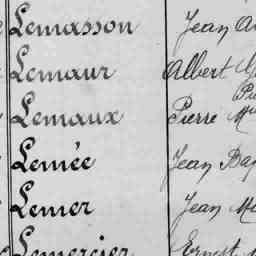 Lemasson Jean
Lemaur Albert
Lemaux Pierre
Lemée Jean
Lemer Jean
Lemercier Ernest